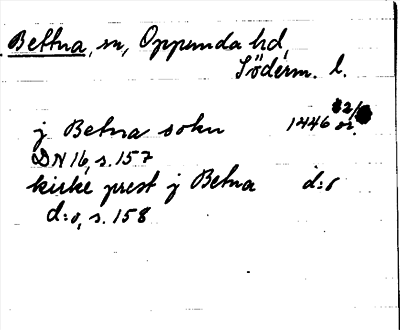 Bettna, sn, Oppunda hd,
Söderm. l.
j Betna sokn 1446 32/ or.
DN 16, s. 157
kirke prest j Betna d:o
d:o, s. 158